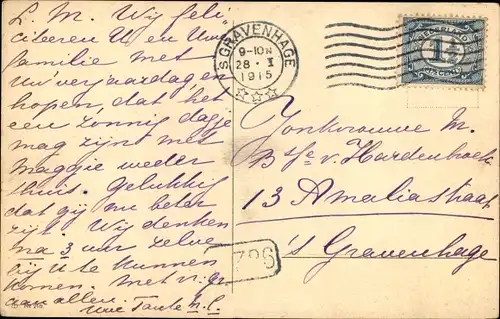 L. M. Wij feli-
citeren U en Uwe
familie met
Uw verjaardag en
hopen, dat het
een zonnig dagje
mag zijn met
Magsje weder
thuis. Gelukkig
dat gij nu beter
zijt. Wij denken
na 3 uur zelve
bij U te kunnen
komen. Met v. gr.
aan allen.
Uwe Tante M. C.
'S GRAVENHAGE
9-10 N
28 · X
1915
NEDERLAND
1½
CENT
Jonkvrouwe M.
B v. Hardenbroek
13 Amaliastraat
's Gravenhage